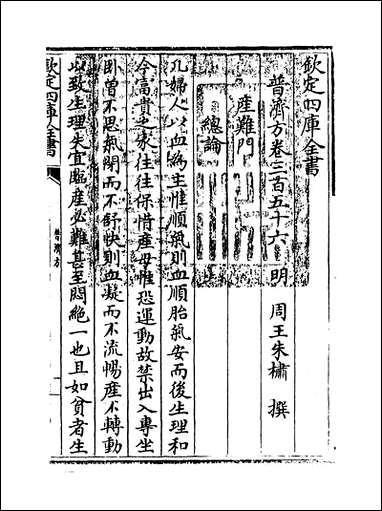 欽定四庫全書
普濟方卷三百五十六 明 周王朱橚 撰
產難門
總論
凡婦人以血為主惟順氣則血順胎氣安而後生理和
今富貴之家往往保惜產母惟恐運動故禁出入專坐
卧曽不思氣閉而不舒快則血凝而不流暢產不轉動
以致生理失宜臨產必難甚至悶絶一也且如貧者生
欽定四庫全書
普濟方